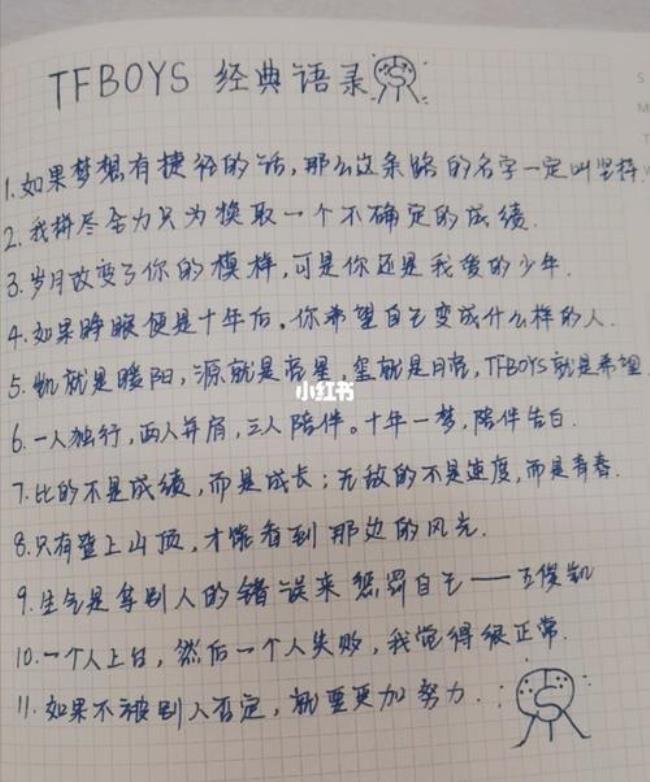 TFBOYS 经典语录
1.如果梦想有捷径的话,那么这条路的名字一定叫坚持.
2.我拼尽全力只为换取一个不确定的成绩.
3.岁月改变了你的模样,可是你还是我爱的少年.
4.如果睁眼便是十年后。你希望自己变成什么样的人.
5.凯就是暖阳,源就是亮星,玺就是月亮,TFBOYS就是希望
小红书
6.一人独行,两人并肩,三人陪伴。十年一梦,陪伴告白.
7.比的不是成绩,而是成长;无敌的不是速度,而是青春.
8.只有登上山顶,才能看到那边的风光.
9.生气是拿别人的错误来惩罚自己——王俊凯
10.一个人上台,然后一个人失败,我觉得很正常.
11.如果不被别人否定,就要更加努力.
S
M
T